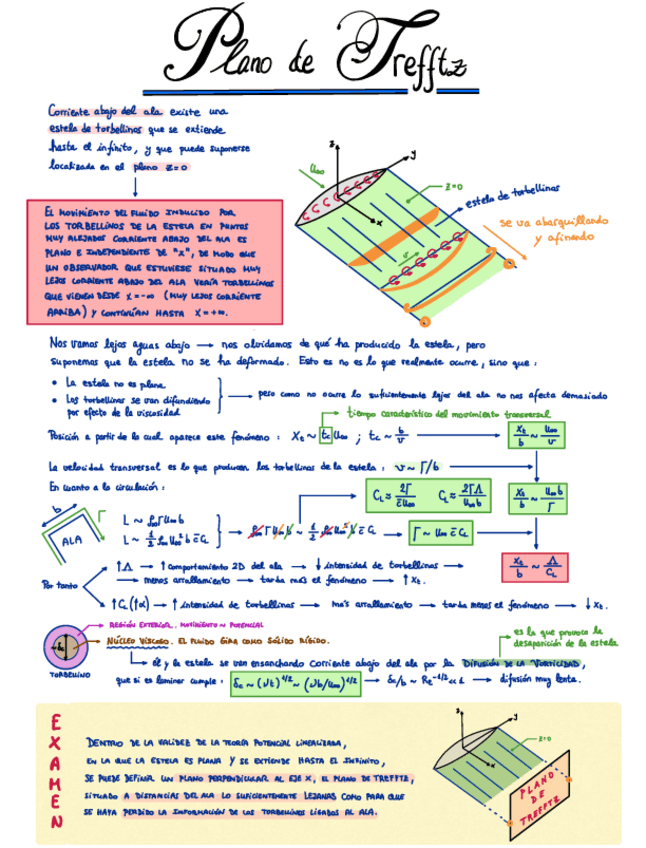 Plano de Trefftz
Corriente abajo del ala existe una
estela de torbellinos que se extiende
hasta el infinito, y que puede suponerse
localizada en el plano z=0
EL MOVIMIENTO DEL FLUIDO INDUCIDO POR
LOS TORBELLINOS DE LA ESTELA EN PUNTOS
MUY ALEJADOS CORRIENTE ABAJO DEL ALA ES
PLANO E INDEPENDIENTE DE "X", DE MODO QUE
UN OBSERVADOR QUE ESTUVIESE SITUADO MUY
LEJOS CORRIENTE ABAJO DEL ALA VERÍA TORBELLINOS
QUE VIENEN DESDE X=-∞ (MUY LEJOS CORRIENTE
ARRIBA) Y CONTINÚAN HASTA X=+∞.
z
y
x
U∞
z=0
estela de torbellinos
se va abarquillando
y afinando
v
Nos vamos lejos aguas abajo → nos olvidamos de qué ha producido la estela, pero
suponemos que la estela no se ha deformado. Esto es no es lo que realmente ocurre, sino que:
• La estela no es plana.
• Los torbellinos se van difundiendo
por efecto de la viscosidad
→ pero como no ocurre lo suficientemente lejos del ala no nos afecta demasiado
tiempo característico del movimiento transversal
Posición a partir de la cual aparece este fenómeno: Xt ~ tc U∞ ; tc ~ b/v → Xt/b ~ U∞/v
La velocidad transversal es lo que producen los torbellinos de la estela: v ~ Γ/b
En cuanto a la circulación:
CL ≈ 2Γ/c̄U∞ CL ≈ 2ΓΛ/U∞b
Xt/b ~ U∞b/Γ
b
Γ
ALA
L ~ ρ∞ΓU∞b
L ~ 1/2 ρ∞U∞²b c̄ CL
→ ρ∞ΓU∞b ~ 1/2 ρ∞U∞²b c̄ CL → Γ ~ U∞ c̄ CL
Xt/b ~ Λ/CL
Por tanto
↑Λ → ↑comportamiento 2D del ala → ↓intensidad de torbellinos →
→ menos arrollamiento → tarda más el fenómeno → ↑Xt.
↑CL(↑α) → ↑intensidad de torbellinos → más arrollamiento → tarda menos el fenómeno → ↓Xt.
REGIÓN EXTERIOR. MOVIMIENTO ~ POTENCIAL
NÚCLEO VISCOSO. EL FLUIDO GIRA COMO SÓLIDO RÍGIDO.
δc
TORBELLINO
es lo que provoca la
desaparición de la estela
él y la estela se van ensanchando corriente abajo del ala por la DIFUSIÓN DE LA VORTICIDAD,
que si es laminar cumple: δc ~ (νt)^1/2 ~ (νb/U∞)^1/2 → δc/b ~ Re^-1/2 << 1 → difusión muy lenta.
EXAMEN
DENTRO DE LA VALIDEZ DE LA TEORÍA POTENCIAL LINEALIZADA,
EN LA QUE LA ESTELA ES PLANA Y SE EXTIENDE HASTA EL INFINITO,
SE PUEDE DEFINIR UN PLANO PERPENDICULAR AL EJE X, EL PLANO DE TREFFTZ,
SITUADO A DISTANCIAS DEL ALA LO SUFICIENTEMENTE LEJANAS COMO PARA QUE
SE HAYA PERDIDO LA INFORMACIÓN DE LOS TORBELLINOS LIGADOS AL ALA.
z
y
x
z=0
PLANO
DE
TREFFTZ